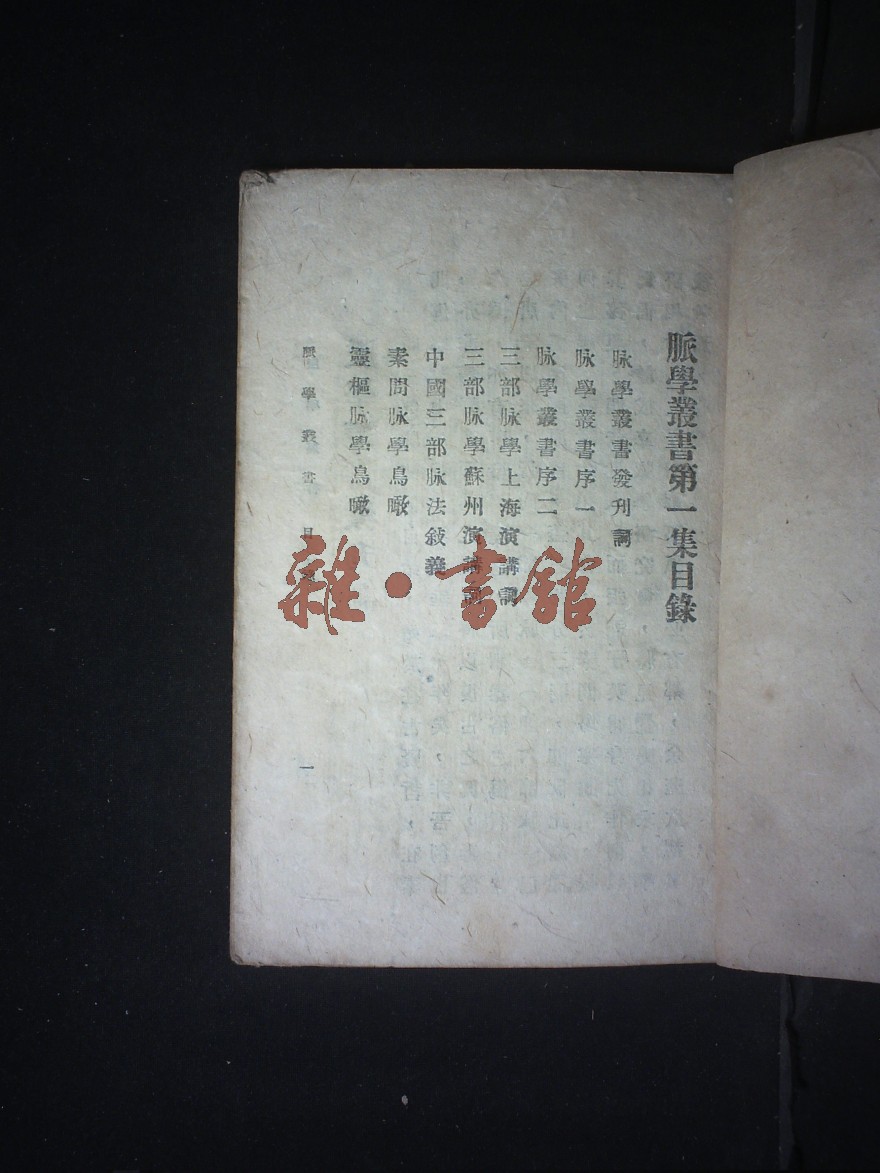 脈學叢書第一集目錄
脉學叢書發刊詞
脉學叢書序一
脉學叢書序二
三部脉學上海演講詞
三部脉學蘇州演講詞
中國三部脉法敍義
素問脉學鳥瞰
靈樞脉學鳥瞰
脈學叢書 目
一
雜·書館